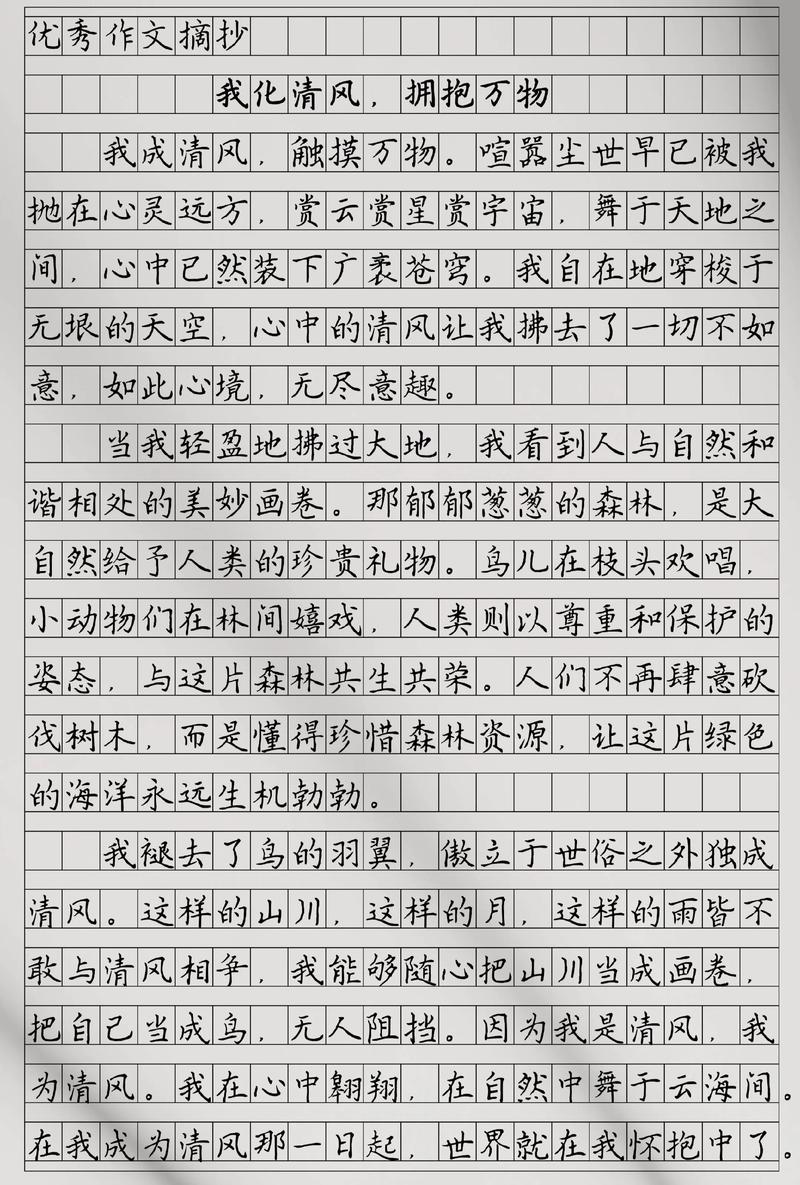 优秀作文摘抄
我化清风，拥抱万物
我成清风，触摸万物。喧嚣尘世早已被我
抛在心灵远方，赏云赏星赏宇宙，舞于天地之
间，心中已然装下广袤苍穹。我自在地穿梭于
无垠的天空，心中的清风让我拂去了一切不如
意，如此心境，无尽意趣。
当我轻盈地拂过大地，我看到人与自然和
谐相处的美妙画卷。那郁郁葱葱的森林，是大
自然给予人类的珍贵礼物。鸟儿在枝头欢唱，
小动物们在林间嬉戏，人类则以尊重和保护的
姿态，与这片森林共生共荣。人们不再肆意砍
伐树木，而是懂得珍惜森林资源，让这片绿色
的海洋永远生机勃勃。
我褪去了鸟的羽翼，傲立于世俗之外独成
清风。这样的山川，这样的月，这样的雨皆不
敢与清风相争，我能够随心把山川当成画卷，
把自己当成鸟，无人阻挡。因为我是清风，我
为清风。我在心中翱翔，在自然中舞于云海间。
在我成为清风那一日起，世界就在我怀抱中了。